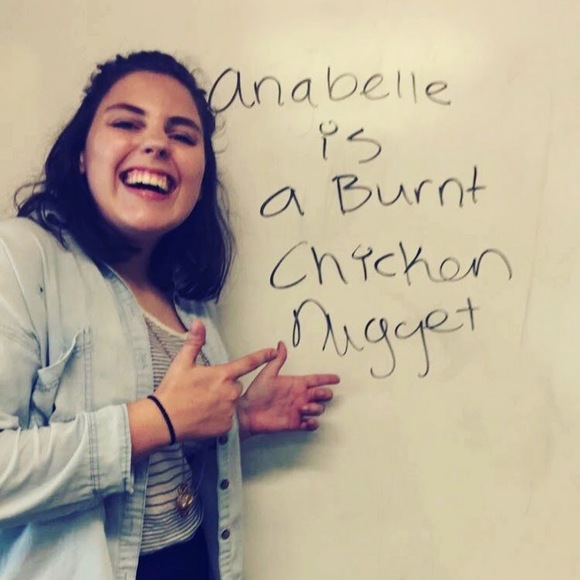 Anabelle
is
a Burnt
Chicken
Nugget